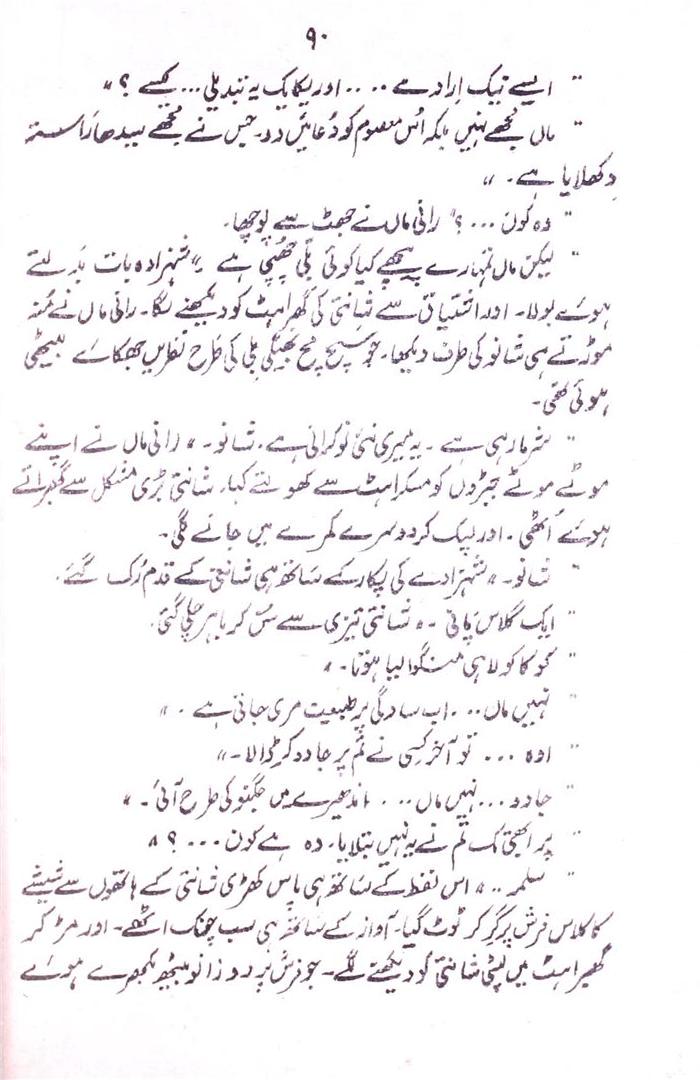 ۹۰
" ایسے نیک اِرادے .... اور یکایک یہ تبدیلی... کیسے ؟ "
" ماں مجھے نہیں بلکہ اُس معصوم کو دُعائیں دو۔ جس نے مجھے سیدھا راستہ
دِکھلایا ہے۔ "
" وہ کون ...؟" رانی ماں نے جھٹ سے پوچھا۔
" لیکن ماں تمہارے پیچھے کیا کوئی بلّی چھپی ہے " شہزادہ بات بدلتے
ہوئے بولا۔ اور اشتیاق سے شانتی کی گھبراہٹ کو دیکھنے لگا۔ رانی ماں نے مُنہ
موڑتے ہی شانو کی طرف دیکھا۔ جو سچ مچ بھیگی بلی کی طرح نظریں جھکائے بیٹھی
ہوئی تھی۔
" شرما رہی ہے ۔ یہ میری نئی نوکرانی ہے۔ شانو۔ " رانی ماں نے اپنے
موٹے موٹے جبڑوں کو مسکراہٹ سے کھولتے کہا۔ شانتی بڑی مشکل سے گھبراتے
ہوئے اُٹھی ۔ اور لپک کر دوسرے کمرے میں جانے لگی۔
" شانو۔ " شہزادے کی پکار کے ساتھ ہی شانتی کے قدم رُک گئے۔
" ایک گلاس پانی ۔ " شانتی تیزی سے سُن کر باہر چلی گئی۔
" کوکا کولا ہی منگوا لیا ہوتا۔ "
" نہیں ماں ... اب سادگی پر طبیعت مری جاتی ہے ۔ "
" اوہ ... تو آخر کسی نے تم پر جادو کر ڈالا۔ "
" جادو ... نہیں ماں ... اندھیرے میں جگنو کی طرح آئی۔ "
" پر ابھی تک تم نے یہ نہیں بتلایا۔ وہ ہے کون ...؟ "
" سلمہ .. " اس لفظ کے ساتھ ہی پاس کھڑی شانتی کے ہاتھوں سے شیشے
کا گلاس فرش پر گر کر ٹوٹ گیا۔ آواز کے ساتھ ہی سب چونک اٹھے۔ اور مڑ کر
گھبراہٹ میں لپٹی شانتی کو دیکھنے لگے۔ جو فرش پر دو زانو بیٹھ بکھرے ہوئے